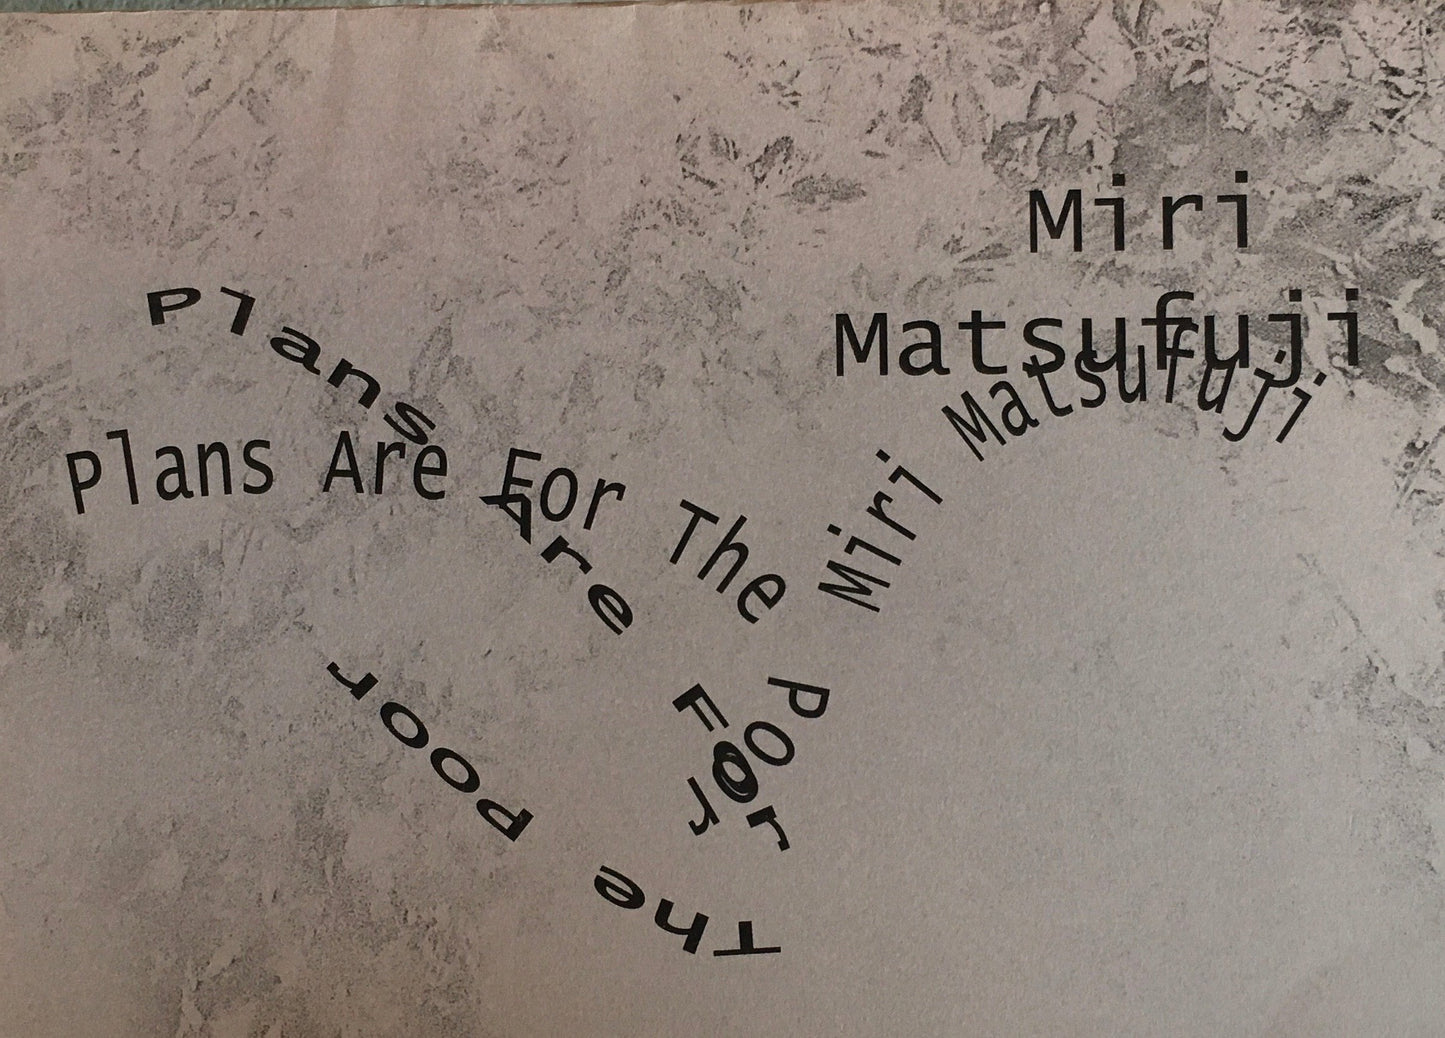 Miri
Matsufuji
Miri Matsufuji
Plans Are For The Poor
Plans Are For The Poor